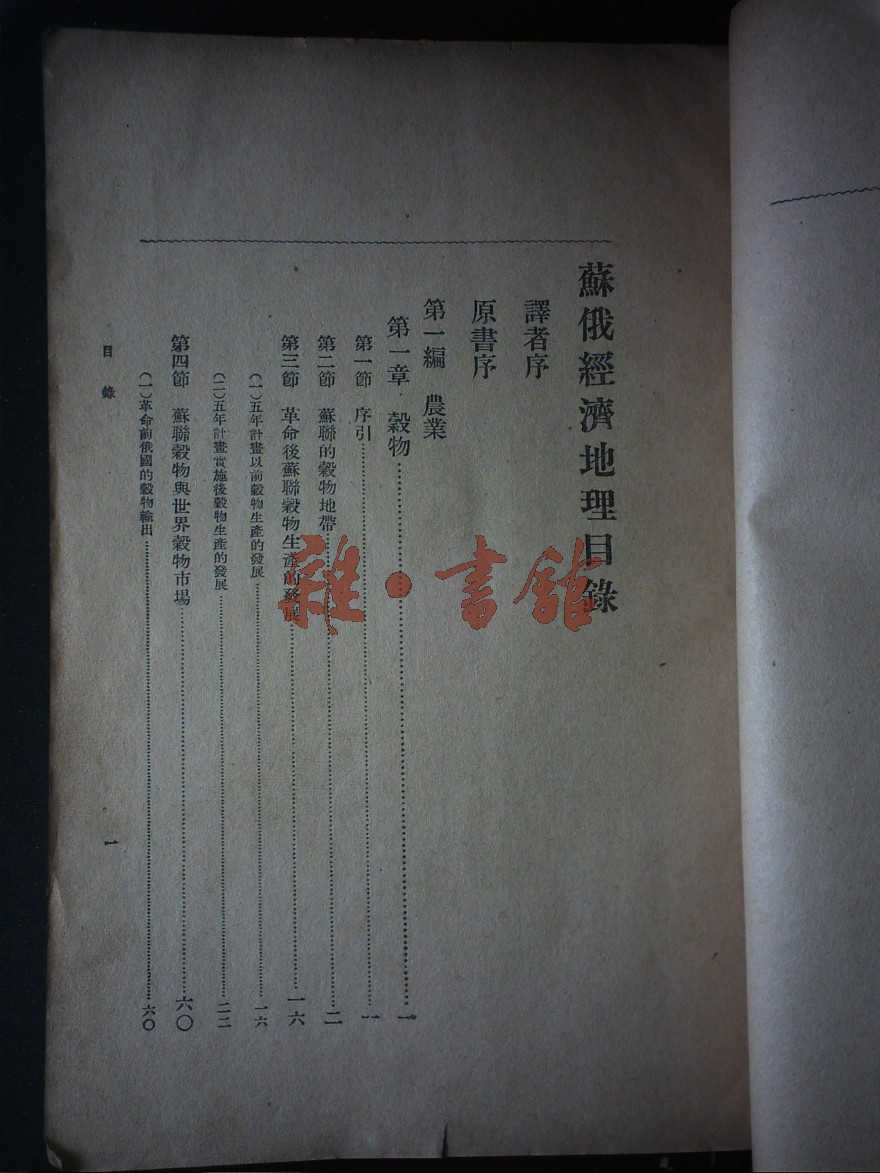 蘇俄經濟地理目錄
譯者序
原書序
第一編 農業
第一章 穀物…………一
第一節 序引…………一
第二節 蘇聯的穀物地帶…………二
第三節 革命後蘇聯穀物生產的發展…………一六
（一）五年計畫以前穀物生產的發展…………一六
（二）五年計畫實施後穀物生產的發展…………二二
第四節 蘇聯穀物與世界穀物市場…………六〇
（一）革命前俄國的穀物輸出…………六〇
目錄
一
雜·書館